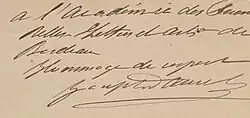 a l'Académie des Sciences
Belles Lettres et Arts de
Bordeaux
Hommage de respect